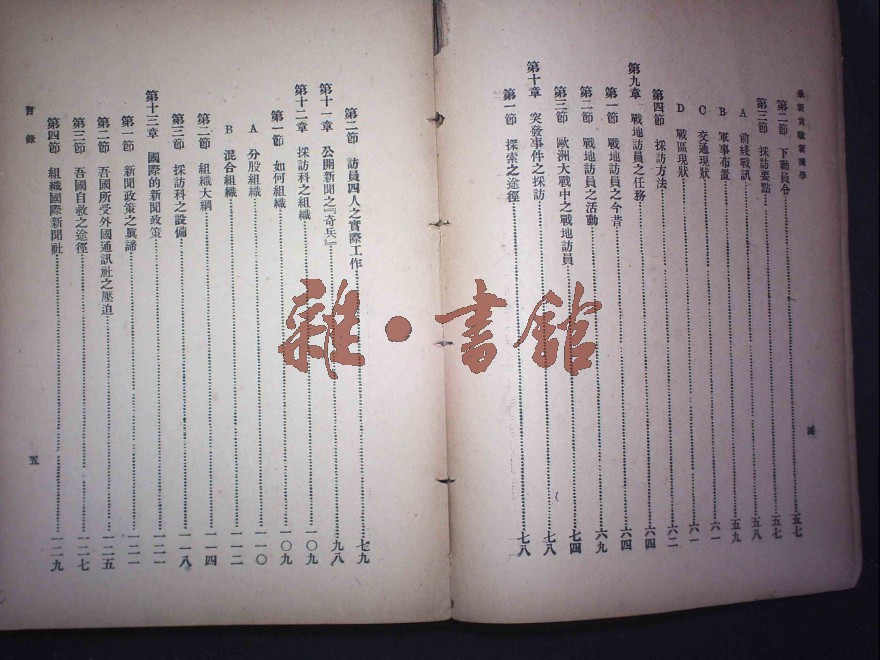 最新實驗新聞學
第二節 下動員令……五七
第三節 採訪要點……五八
A 前綫戰訊……五九
B 軍事布置……六一
C 交通現狀……六一
D 戰區現狀……六二
第四節 採訪方法……六四
第九章 戰地訪員之任務……六四
第一節 戰地訪員之今昔……六九
第二節 戰地訪員之活動……七四
第三節 歐洲大戰中之戰地訪員……七八
第十章 突發事件之採訪……七八
第一節 探索之途徑……七八
四
第二節 訪員四人之實際工作……七九
第十一章 公開新聞之『奇兵』……九八
第十二章 採訪科之組織……一〇九
第一節 如何組織……一〇九
A 分股組織……一一〇
B 混合組織……一一二
第二節 組織大綱……一一四
第三節 採訪科之設備……一一八
第十三章 國際的新聞政策……一二一
第一節 新聞政策之眞諦……一二一
第二節 吾國所受外國通訊社之壓迫……一二五
第三節 吾國自救之途徑……一二七
第四節 組織國際新聞社……一二九
目錄
五
雜·書館